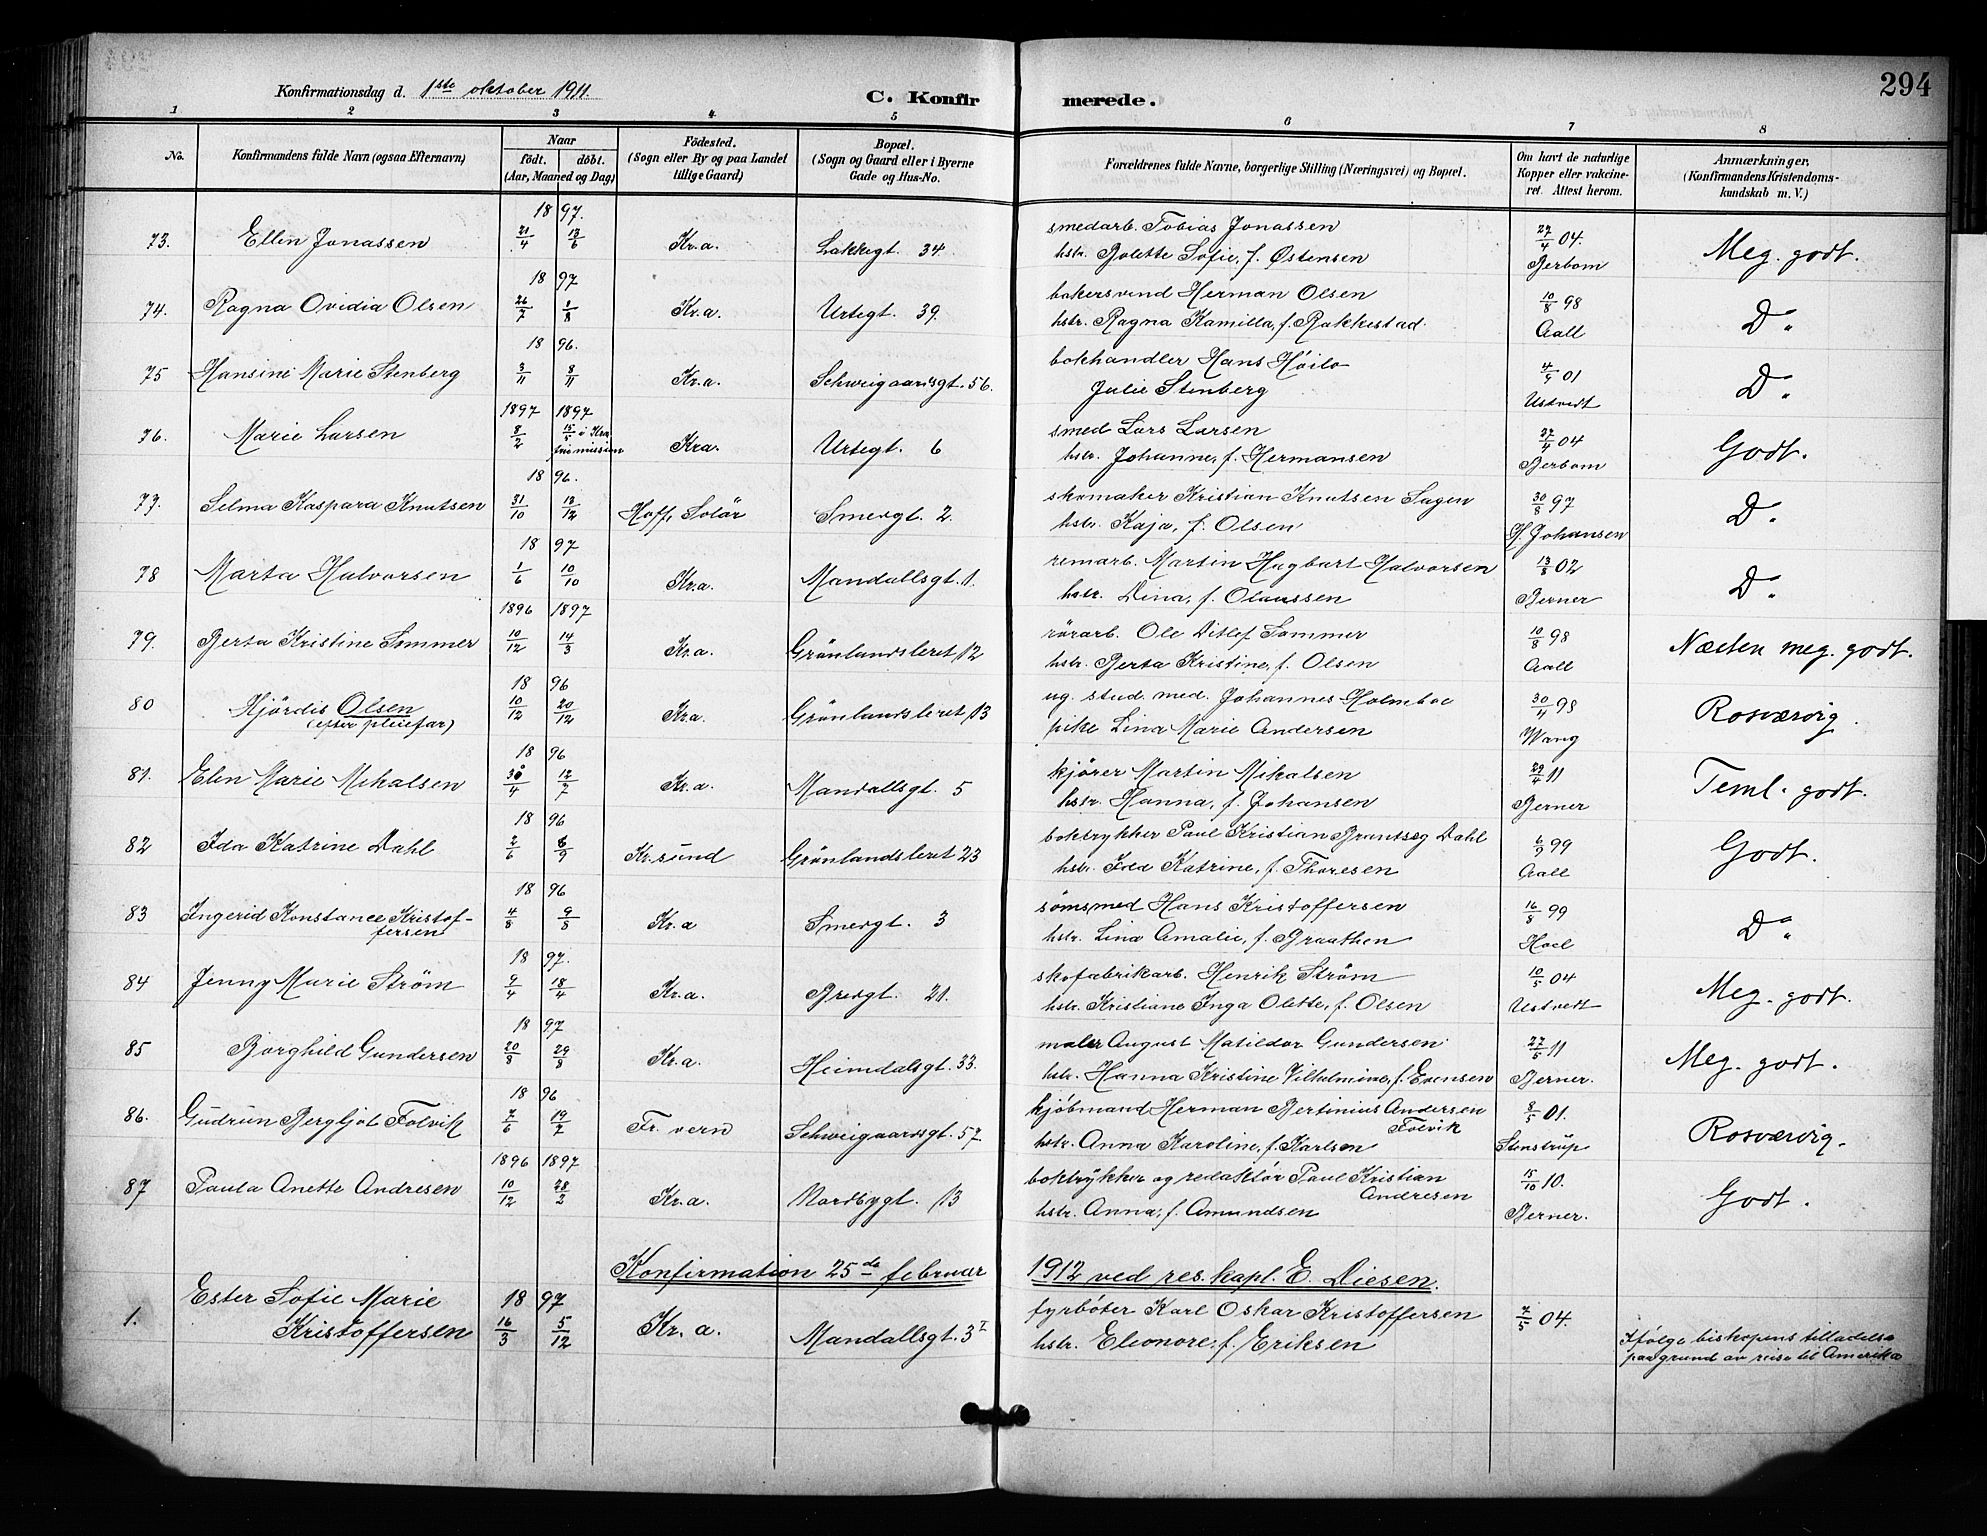 294
Konfirmationsdag d. 1ste oktober 1911.
C. Konfirmerede.
1 2 3 4 5 6 7 8
No. Konfirmandens fulde Navn (ogsaa Efternavn) Naar født. døbt. (Aar, Maaned og Dag) Födested. (Sogn eller By og paa Landet tillige Gaard) Bopæl. (Sogn og Gaard eller i Byerne Gade og Hus-No. Forældrenes fulde Navne, borgerlige Stilling (Næringsvei) og Bopæl. Om havt de naturlige Kopper eller vakcineret. Attest herom. Anmærkninger. (Konfirmandens Kristendomskundskab m. V.)
18 97.
73. Ellen Jonassen 21/4 13/6 Kr.a. Lakkegt. 34. smedarb. Tobias Jonassen 27/4 04. Meg. godt.
hstr. Bolette Sofie, f. Østensen Berbom
18 97
74. Ragna Ovidia Olsen 26/7 1/8 Kr.a. Urtegt. 39. bakersvend Herman Olsen 10/8 98 Do
hstr. Ragna Kamilla, f. Rakkestad. Aall
18 96.
75 Hansine Marie Stenberg 3/11 8/11 Kr.a. Schweigaardsgt. 56. bokhandler Hans Höilo 4/9 01 Do
Julie Stenberg Ustvedt
1897 1897
76. Marie Larsen 8/2 15/5 i Kra. Kra. Urtegt. 6 smed Lars Larsen 27/4 04 Godt.
hstr. Johanne, f. Hermansen Berbom
18 96.
77. Selma Kaspara Knutsen 31/10 13/12 Hoff, Solör Smedgt. 2. skomaker Kristian Knutsen Sagen 30/8 97 Do
hstr. Kaja, f. Olsen Johansen
18 97
78 Marta Halvorsen 1/6 10/10 Kr.a. Mandallsgt. 1. remarb. Martin Hagbart Halvorsen 13/8 02 Do
hstr. Dina, f. Olaussen Berner
1896 1897
79. Berta Kristine Sommer 10/12 14/3 Kr.a. Grönlandsleret 12 rörarb. Ole Ditlef Sommer 10/8 98 Næsten meg. godt.
hstr. Berta Kristine, f. Olsen Aall
18 96
80 Hjördis Olsen 10/12 20/12 Kr.a. Grönlandsleret 13 ug. stud. med. Johannes Holmboe 30/4 98 Rosværdig.
(efter pleiefar) pike Lina Marie Andersen Wang
18 96
81. Elen Marie Mikalsen 30/4 12/7 Kr.a. Mandallsgt. 5 kjörer Martin Mikalsen 29/4 11 Teml. godt.
hstr. Hanna, f. Johansen Berner
18 96
82 Ida Katrine Dahl 2/6 6/9 Kr.sund Grönlandsleret 23 boktrykker Paul Kristian Brantseg Dahl 6/9 99 Godt.
hstr. Ida Katrine, f. Thoresen Aall
18 96
83 Ingerid Konstance Kristoffersen 4/8 9/8 Kr.a Smedgt. 3 sömsmed Hans Kristoffersen 16/8 99 Do
hstr. Lina Amalie, f. Braathen Hoel
18 97.
84 Jenny Marie Ström 9/4 18/4 Kr.a. Bredgt. 21. skofabrikarb. Henrik Ström 10/5 04 Meg. godt.
hstr. Kristiane Inga Olette, f. Olsen Ustvedt
18 97
85 Borghild Gundersen 20/8 29/8 Kr.a. Heimdalsgt. 33. maler August Matildor Gundersen 27/5 11 Meg. godt.
hstr. Hanna Kristine Vilhelmine, f. Evensen Berner.
18 96
86. Gudrun Bergljot Folvik 7/6 19/7 Fr. vern Schweigaardsgt. 57 kjöbmand Herman Bertinius Andersen Folvik 8/5 01. Rosværdig.
hstr. Anna Karoline, f. Karlsen Stenstrup
1896 1897
87 Paula Anette Andresen 10/12 28/2 Kr.a. Nordbygt. 13 boktrykker og redaktör Paul Kristian Andresen 15/10 10. Godt.
hstr. Anna, f. Amundsen Berner.
Konfirmation 25de februar 1912 ved res. kapl. E. Diesen.
1. Ester Sofie Marie Kristoffersen 18 97 16/3 5/12 Kr. a. Mandallsgt. 3 I fyrböter Karl Oskar Kristoffersen 7/5 04.
hstr. Eleonore, f. Eriksen Ifølge biskopens tilladelse
paa grund av reise til Amerika